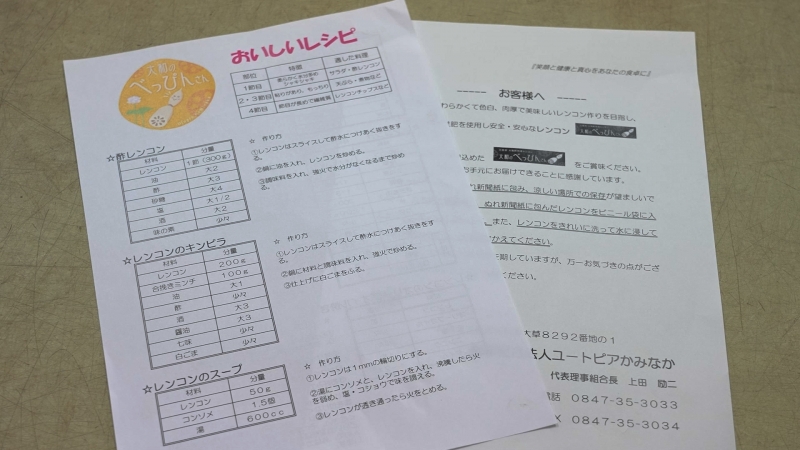 大和の
べっぴんさん
おいしいレシピ
部位 特徴 適した料理
1節目 柔らかく水分多め シャキシャキ サラダ・酢レンコン
2・3節目 粘りがあり、もっちり 天ぷら・煮物など
4節目 節目が長めで繊維質 レンコンチップスなど
☆酢レンコン
材料 分量
レンコン 1節(300g)
油 大2
酢 大3
砂糖 大4
塩 大1/2
酒 大2
味の素 少々
☆ 作り方
①レンコンはスライスして酢水につけあく抜きをする。
②鍋に油を入れ、レンコンを炒める。
③調味料を入れ、強火で水分がなくなるまで炒める。
☆レンコンのキンピラ
材料 分量
レンコン 200g
合挽きミンチ 100g
油 大1
酢 少々
酒 大3
醤油 大3
七味 少々
白ごま 少々
☆ 作り方
①レンコンはスライスして酢水につけあく抜きをする。
②鍋に材料と調味料を入れ、強火で炒める。
③仕上げに白ごまをふる。
☆レンコンのスープ
材料 分量
レンコン 50g
コンソメ 1.5個
湯 600cc
☆ 作り方
①レンコンは1mmの輪切りにする。
②湯にコンソメと、レンコンを入れ、沸騰したら火を弱め、塩・コショウで味を調える。
③レンコンが透き通ったら火をとめる。
『笑顔と健康と真心をあなたの食卓に』
----- お客様へ -----
わらかくて色白、肉厚で美味しいレンコン作りを目指し、
を使用し安全・安心なレンコン べっぴんさん
込めた べっぴんさん をご賞味ください。
手元にお届けできることに感謝しています。
新聞紙に包み、涼しい場所での保存が望ましいで
ぬれ新聞紙に包んだレンコンをビニール袋に入
また、レンコンをきれいに洗って水に浸して
かえてください。
期していますが、万一お気づきの点がござ
ください。
大草8292番地の1
法人ユートピアかみなか
代表理事組合長 上田
電話 0847-35-3033
X 0847-35-3034